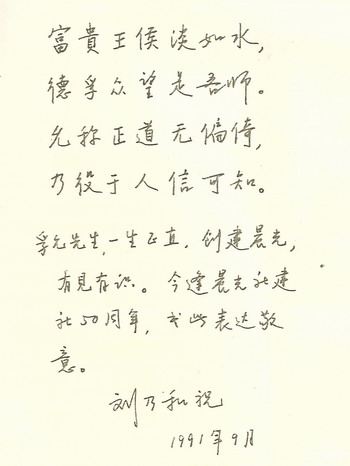 富貴王侯淡如水,
德孚众望是吾师。
允称正道无偏倚,
乃役于人信可知。
孚允先生,一生正直,创建晨光,
有見有识。今逢晨光社建
社50周年,式此表达敬
意。
刘乃和祝
1991年9月